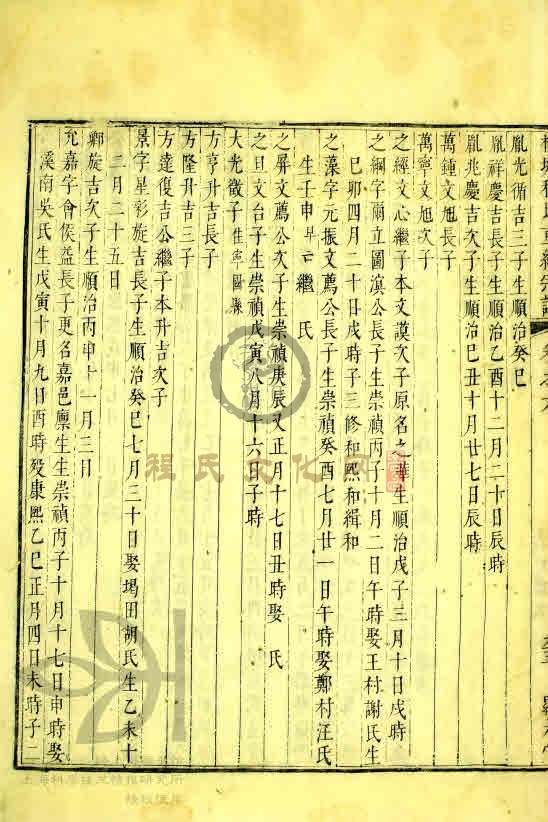 胤光循吉三子生順治癸巳
胤祥慶吉長子生順治乙酉十二月二十日辰時
胤兆慶吉次子生順治己丑十月廿七日辰時
萬鍾文旭長子
萬寧文旭次子
之經文心繼子本文謨次子原名之華生順治戊子三月十日戌時
之綱字爾立圖滇公長子生崇禎丙子十月二日午時娶王村謝氏生
己卯四月二十日戌時子三修和熙和緝和
之藻字元振文薦公長子生崇禎癸酉七月廿一日午時娶鄭村汪氏
生壬申 繼 氏
之屏文薦公次子生崇禎庚辰又正月十七日丑時娶 氏
之旦文台子生崇禎戊寅八月十六日子時
大光徵子住
方亨升吉長子
方隆升吉三子
方達復吉公繼子本升吉次子
景字星彩旋吉長子生順治癸巳七月三十日娶堨田胡氏生乙未十
二月二十五日
鄭旋吉次子生順治丙申十一月三日
允嘉字會侯益長子更名嘉邑廩生生崇禎丙子十月十七日申時娶
溪南吳氏生戊寅十月九日酉時歿康熙乙巳正月四日未時子二
程氏文化